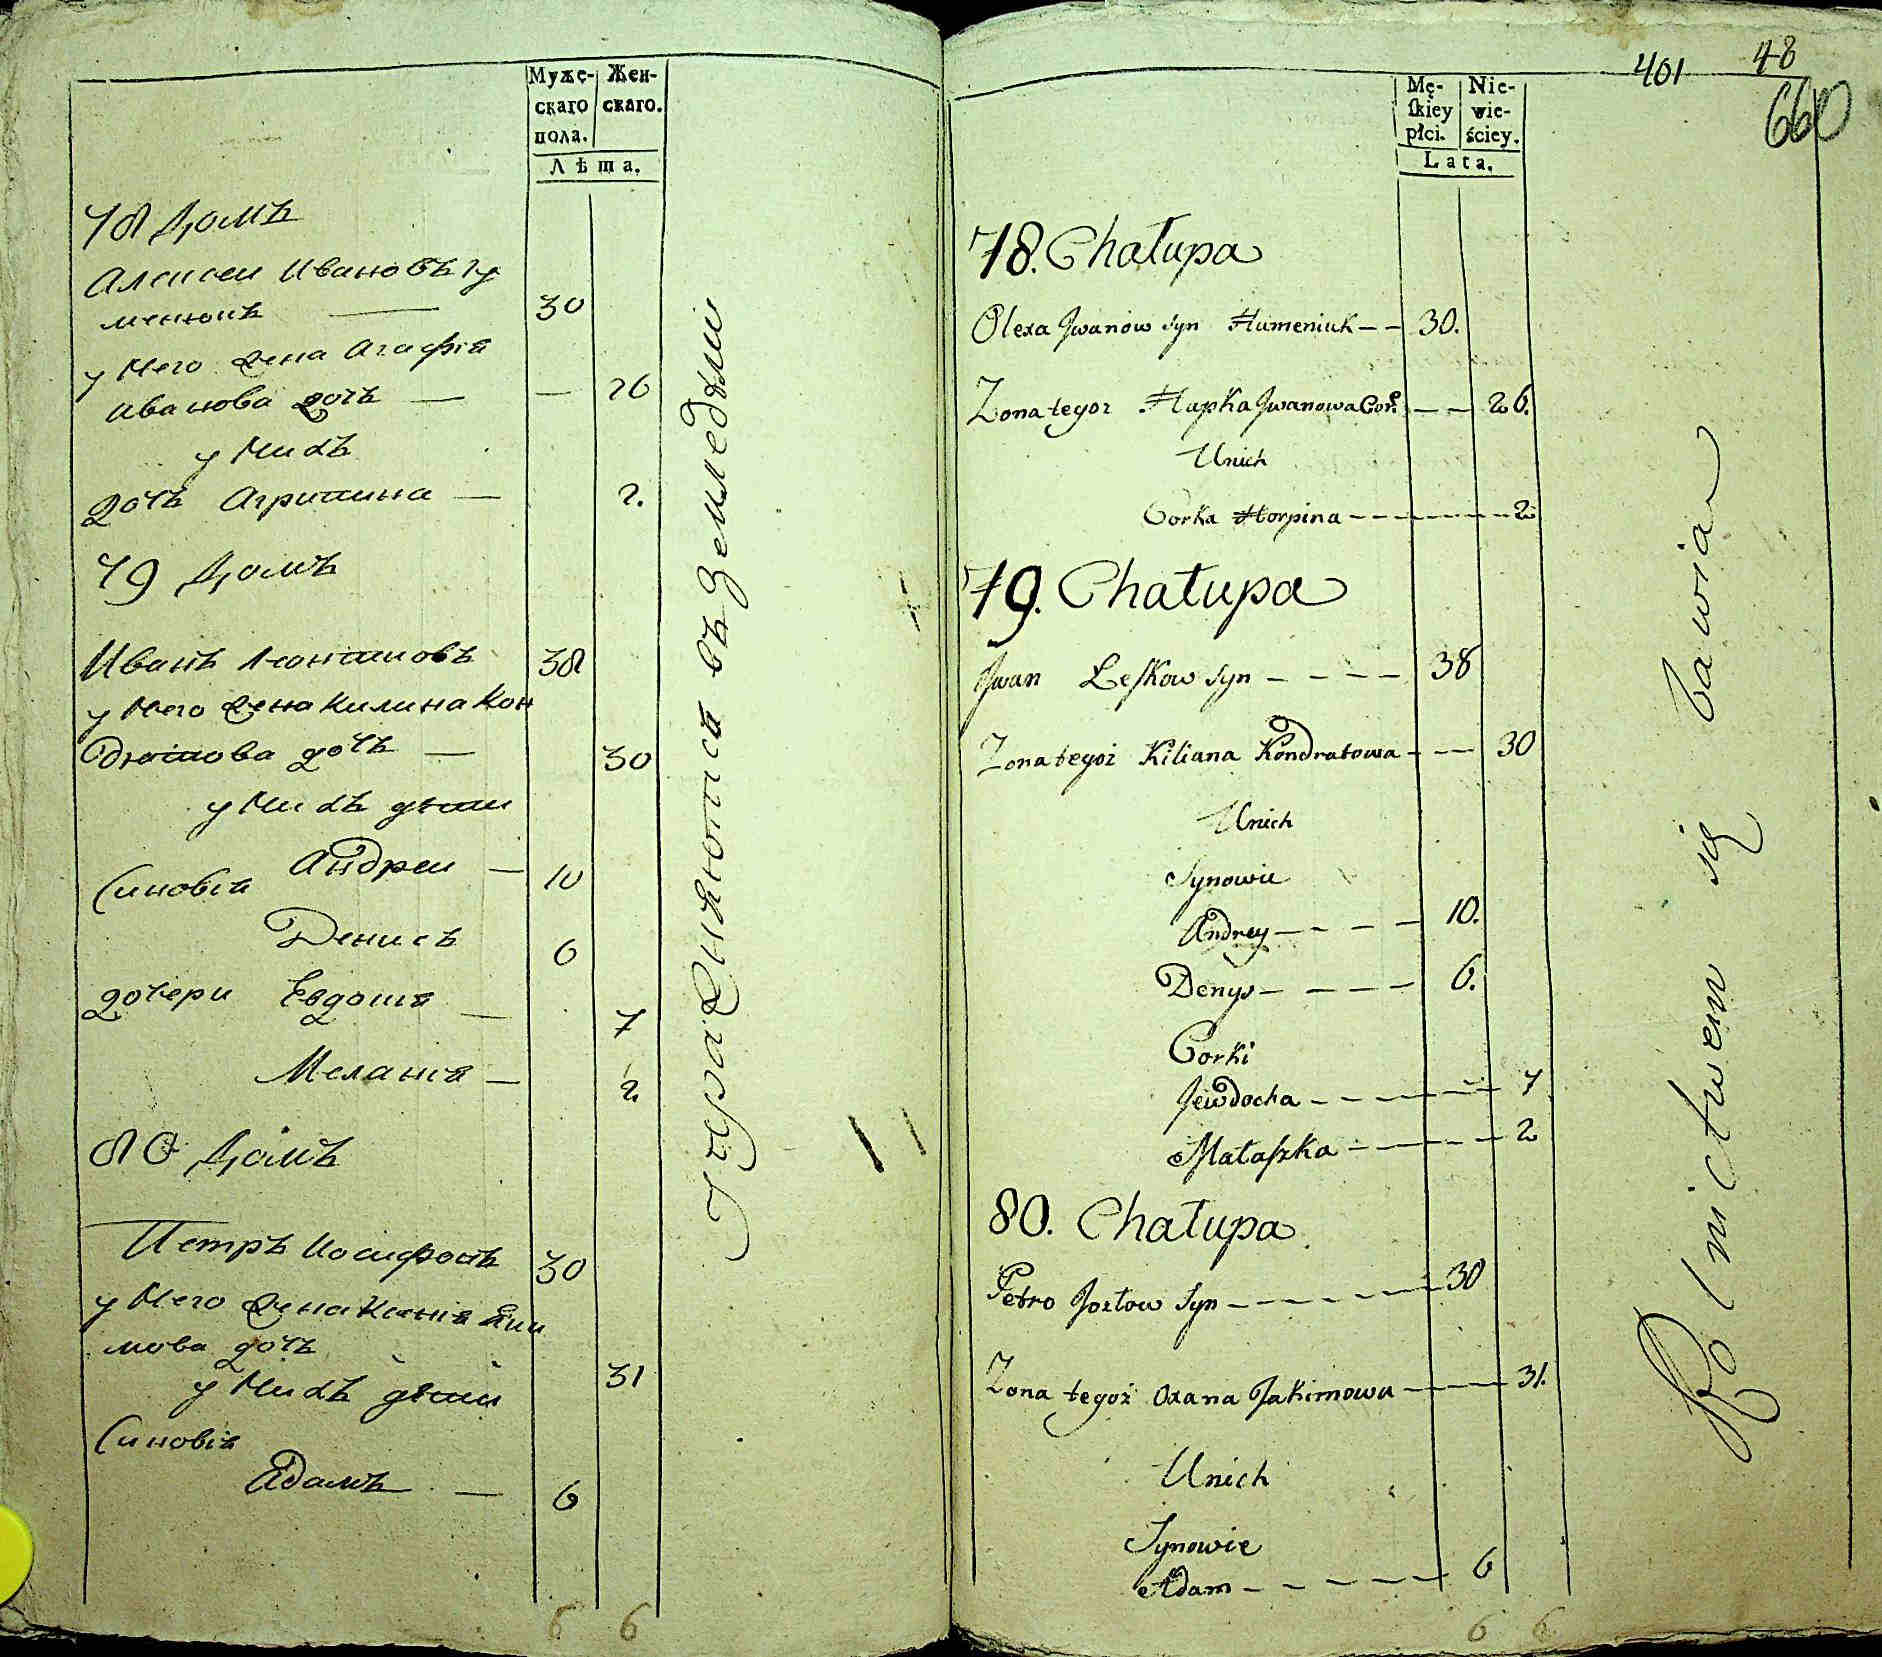 Муже-
скаго
пола.
Жен-
скаго.
Лѣта.
78 Домъ
Алексеи Ивановъ Гу
менюкъ — 30
у Него жена Агафія
Иванова дочь — — 26
у Нихъ
дочь Агрипина — 2.
79 Домъ
Иванъ Леонтиовъ 38
у Него жена Килина Кон
дратова дочь — 30
у Нихъ дѣти
Синовія Андреи — 10
Денисъ 6
дочери Евдокия — 7
Меланія — 2
80 Домъ
Петръ Иосифовъ 30
у Него жена Ксенія Яки
мова дочь 31
у Нихъ дѣти
Синовія
Адамъ — 6
6 6
Упражняются въ Земледѣлии
401 48
660
Mę-
skiey
płci.
Nie-
wie-
ściey.
Lata.
78. Chałupa
Olexa Jwanow syn Humeniuk — — 30.
Zona tegoz Hapka Jwanowa Cor. — — 26.
Unich
Corka Horpina — — — 2
79. Chałupa
Jwan Leskow syn — — — — 38
Zona tegoż Kiliana Kondratowa — — 30
Unich
Synowie
Andrey — — — — 10.
Denys — — — — 6.
Corki
Jewdocha — — — 7
Małaszka — — — 2
80. Chałupa
Petro Jozłow syn — — — 30
Zona tegoż Oxana Jakimowa — — 31.
Unich
Synowie
Adam — — — — 6
6 6
Rolnictwem się bawia